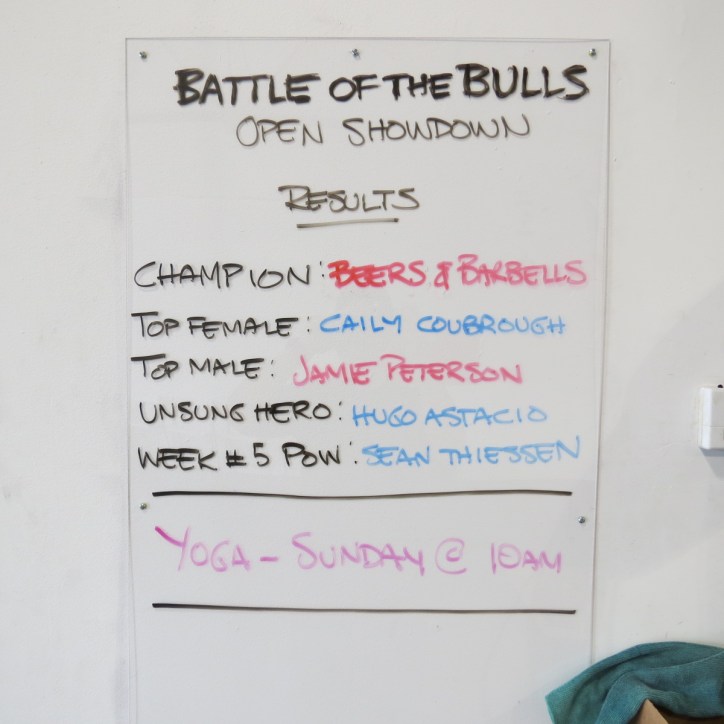 BATTLE OF THE BULLS
OPEN SHOWDOWN
RESULTS
CHAMPION: BEERS & BARBELLS
TOP FEMALE: CAILY COUBROUGH
TOP MALE: JAMIE PETERSON
UNSUNG HERO: HUGO ASTACIO
WEEK #5 POW: SEAN THIESSEN
YOGA - SUNDAY @ 10AM